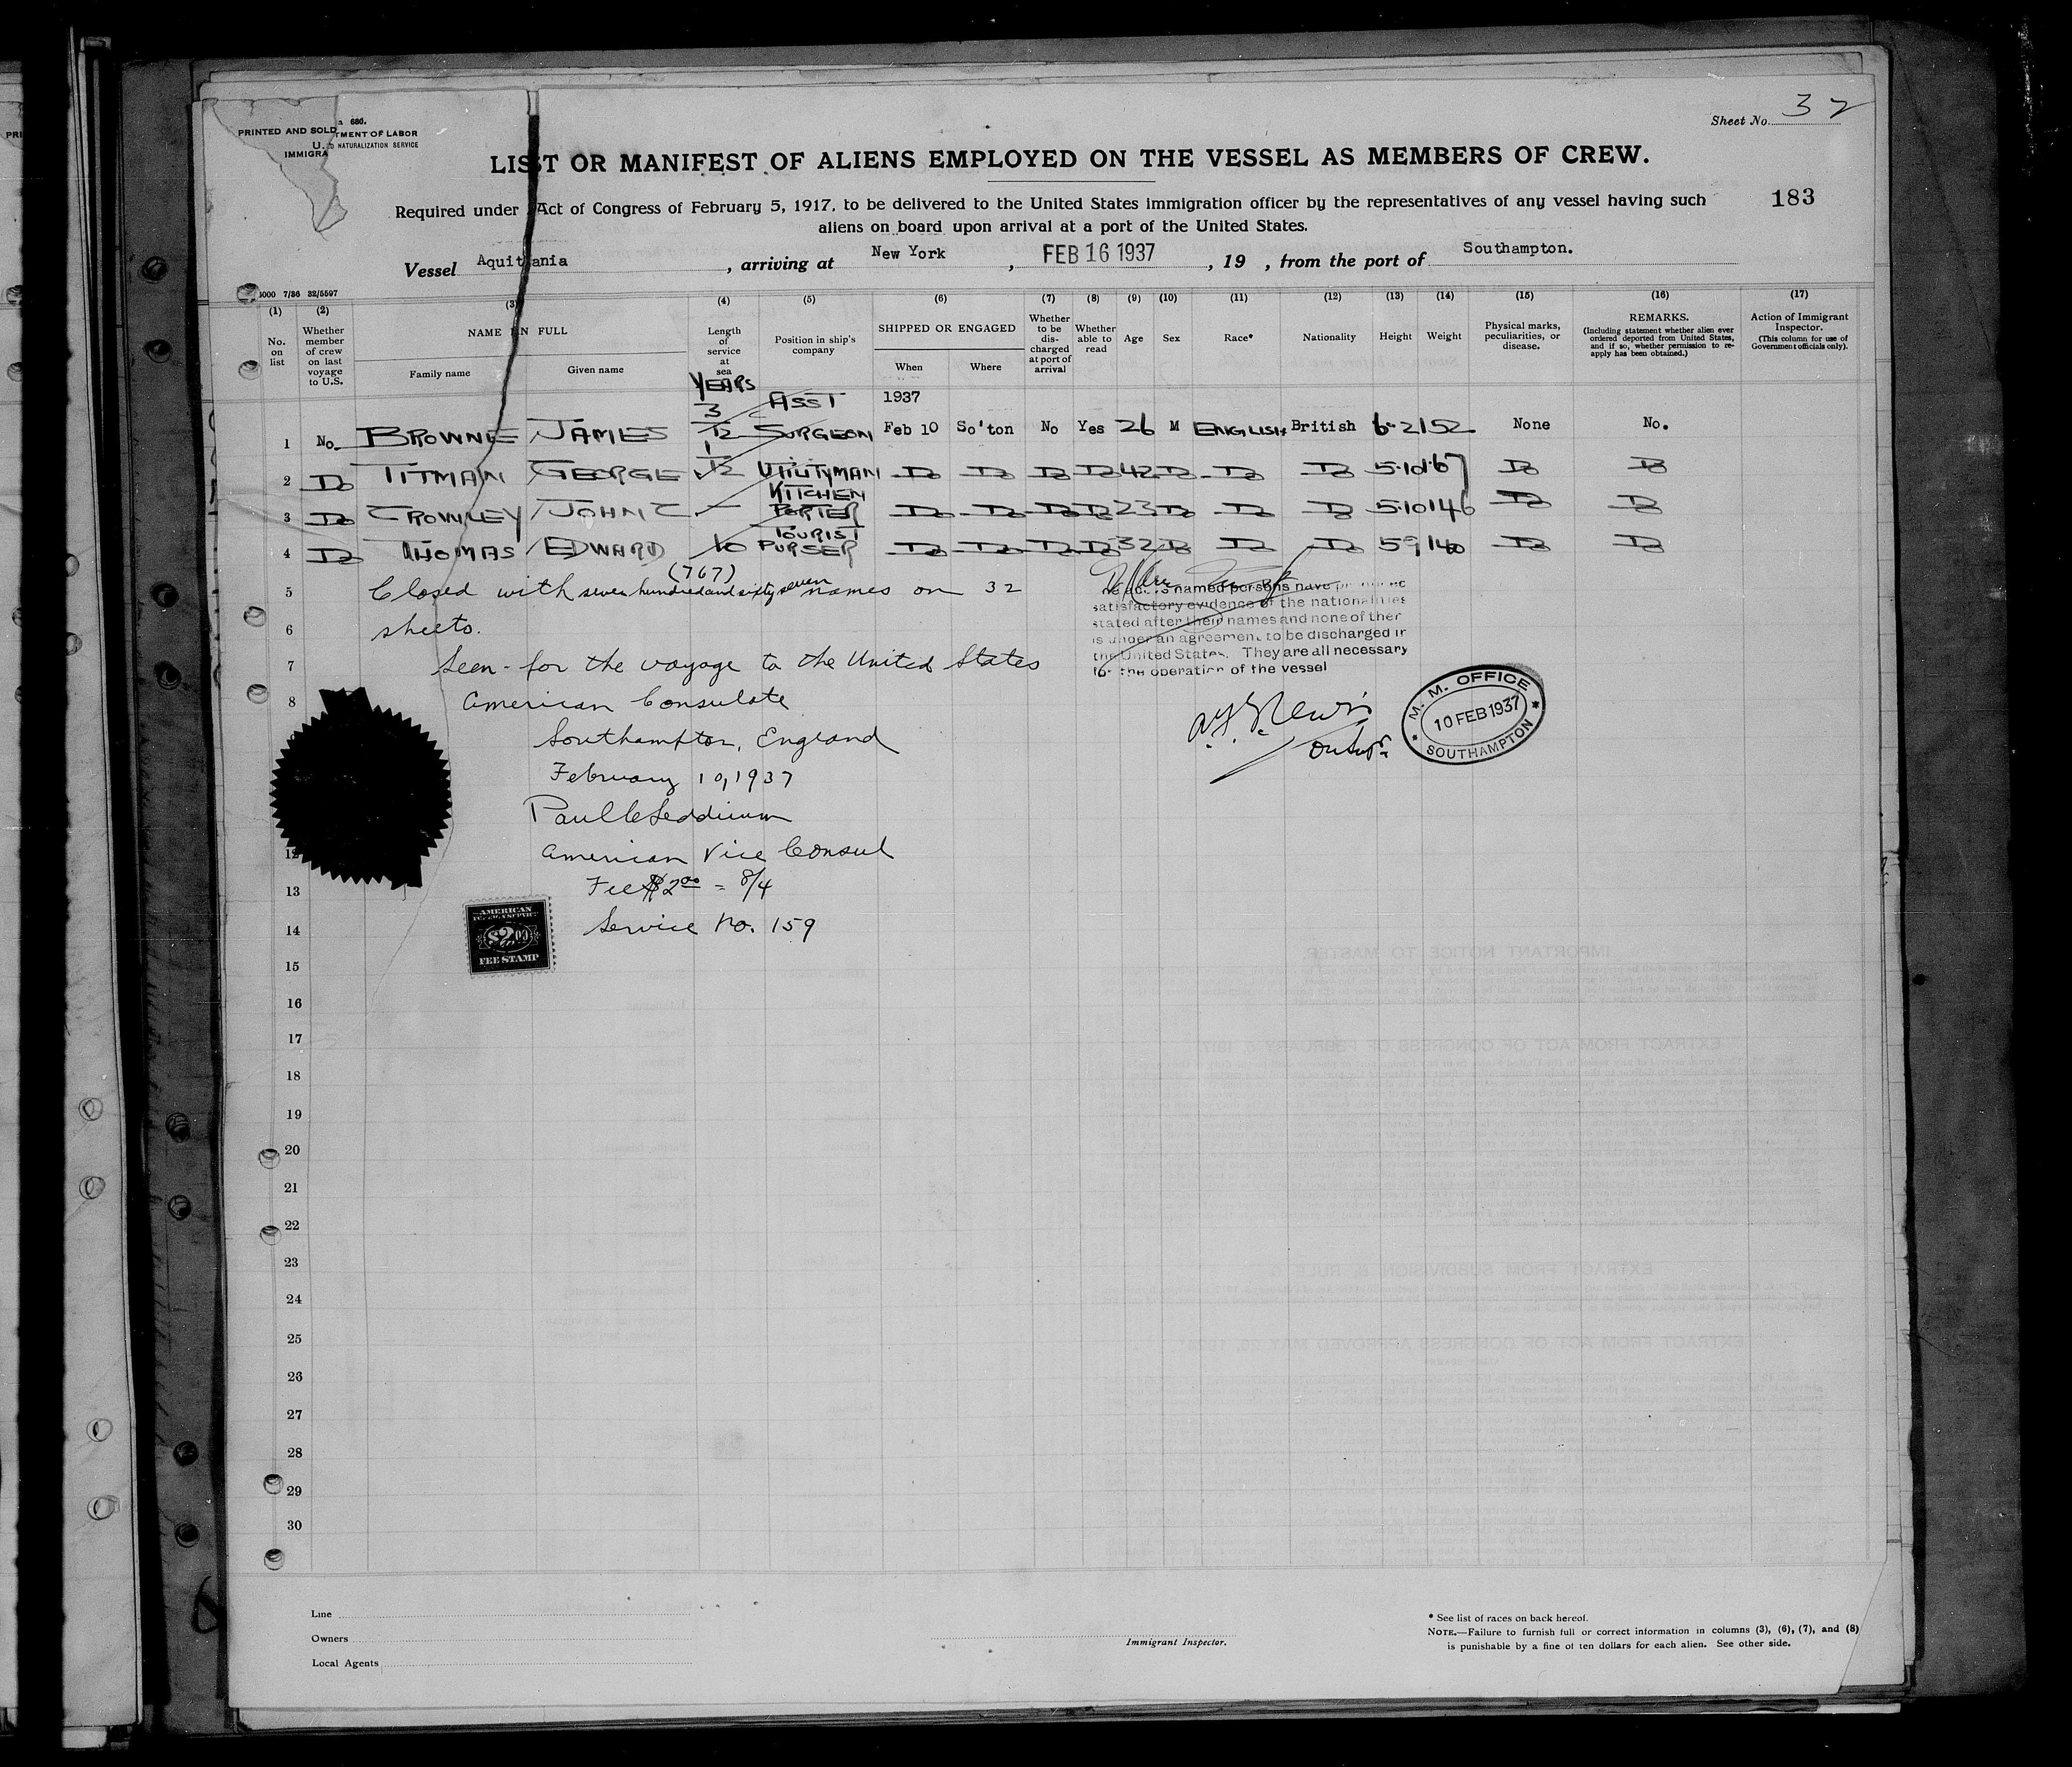 Sheet No. 32
a 680.
PRINTED AND SOLD
TMENT OF LABOR
U.
NATURALIZATION SERVICE
IMMIGRA
LIST OR MANIFEST OF ALIENS EMPLOYED ON THE VESSEL AS MEMBERS OF CREW.
183
Required under Act of Congress of February 5, 1917, to be delivered to the United States immigration officer by the representatives of any vessel having such
aliens on board upon arrival at a port of the United States.
Vessel Aquitania, arriving at New York, FEB 16 1937, 19 , from the port of Southampton.
5000 7/36 32/5597
(1) (2) (3) (4) (5) (6) (7) (8) (9) (10) (11) (12) (13) (14) (15) (16) (17)
No. on list
Whether member of crew on last voyage to U.S.
NAME IN FULL
Family name
Given name
Length of service at sea
YEARS
Position in ship's company
SHIPPED OR ENGAGED
When
Where
Whether to be discharged at port of arrival
Whether able to read
Age
Sex
Race*
Nationality
Height
Weight
Physical marks, peculiarities, or disease.
REMARKS.
(Including statement whether alien ever ordered deported from United States, and if so, whether permission to re-apply has been obtained.)
Action of Immigrant Inspector.
(This column for use of Government officials only).
1937
1 No. BROWNE JAMES 3/12 ASST SURGEON Feb 10 So'ton No Yes 26 M ENGLISH British 6-2 152 None No.
2 Do TITMAN GEORGE 1/12 UTILITYMAN Do Do Do Do 42 Do Do Do 5.10 167 Do Do
3 Do CROWLEY JOHN C — KITCHEN PORTER Do Do Do Do 23 Do Do Do 5.10 146 Do Do
4 Do THOMAS EDWARD 10 TOURIST PURSER Do Do Do Do 32 Do Do Do 5 9 140 Do Do
(767)
5 Closed with seven hundred and sixty seven names on 32
6 sheets.
7 Seen - for the voyage to the United States
8 American Consulate
Southampton, England
February 10, 1937
American Vice Consul
12
13 Fee $2.00 = 8/4
14 Service No. 159
named persons have
satisfactory evidence of the nationalities
stated after their names and none of ther
is under an agreement to be discharged in
the United States. They are all necessary
for the operation of the vessel
M. M. OFFICE
10 FEB 1937
SOUTHAMPTON
AMERICAN
FOREIGN SERVICE
$2.00
FEE STAMP
15
16
17
18
19
20
21
22
23
24
25
26
27
28
29
30
Line
Owners
Local Agents
Immigrant Inspector.
* See list of races on back hereof.
NOTE.—Failure to furnish full or correct information in columns (3), (6), (7), and (8)
is punishable by a fine of ten dollars for each alien. See other side.